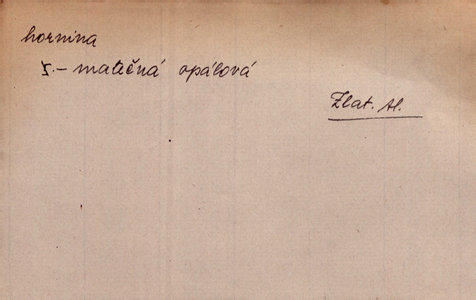 hornina
– matičná opálová
Zlat. Al.